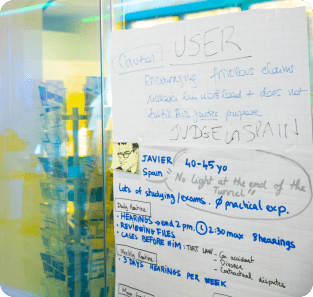 Caution! USER
Encouraging frivolous claims
increases his workload + does not
fulfill this justice purpose
JUDGE IN SPAIN
JAVIER 40-45 yo
Spain
"No light at the end of the
Tunnel"
Lots of studying/exams. Ø practical exp.
Daily Routine
- HEARINGS → end 2 pm. 2:30 max 8 hearings
- REVIEWING FILES
- CASES BEFORE HIM: TORT LAW - Car accident
- Divorce
- Contractual disputes
Weekly Routine
- 3 DAYS HEARINGS PER WEEK